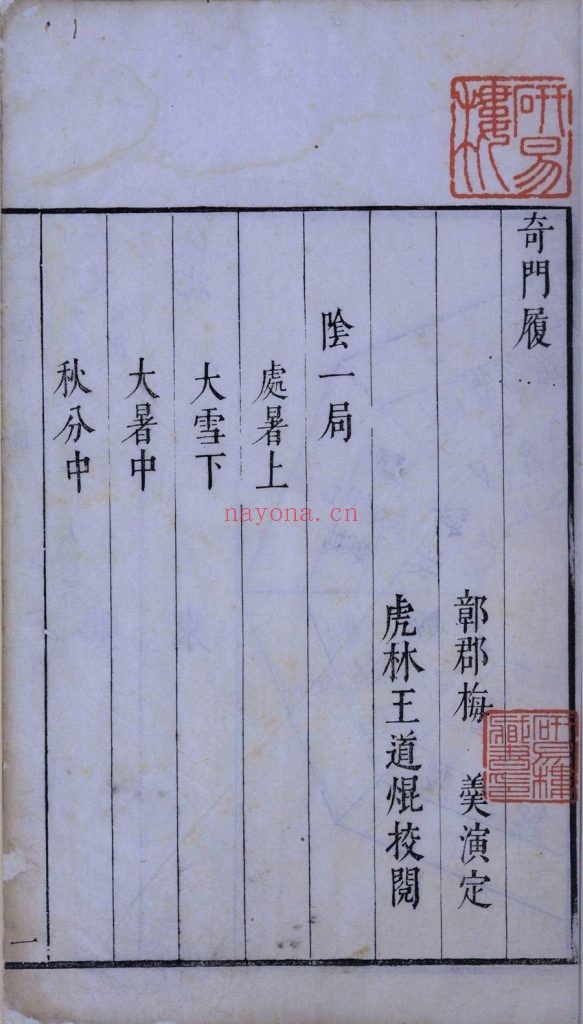 研易樓
奇門履
鄣郡梅　羹演定
研易樓藏書印
虎林王道焜挍閱
陰一局
處暑上
大雪下
大暑中
秋分中
一
nayona.cn